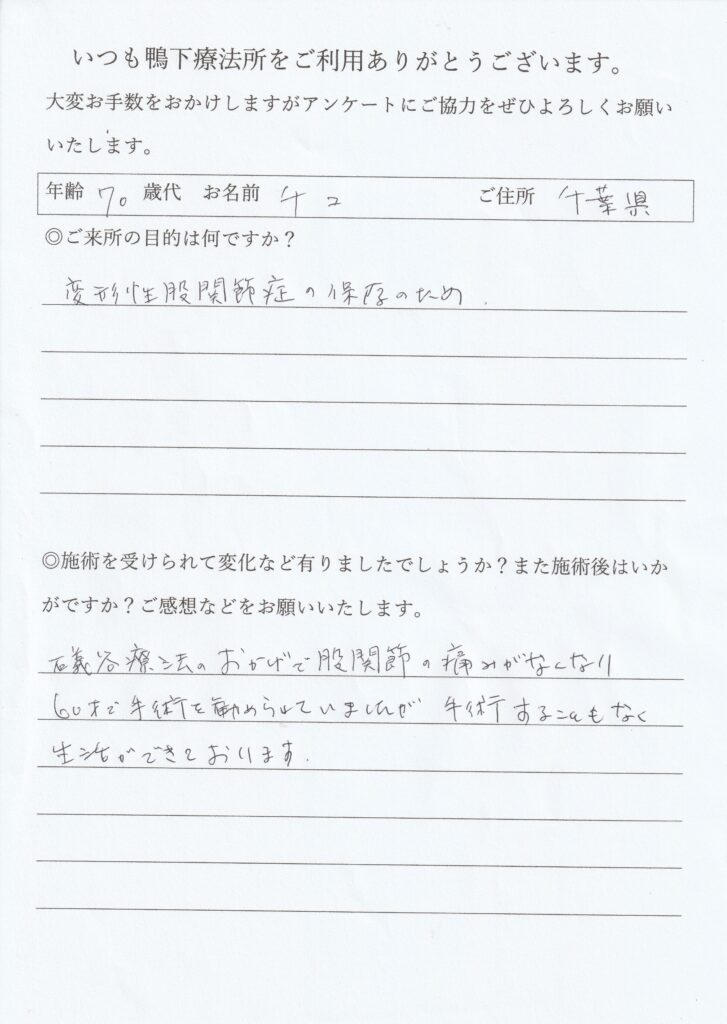 いつも鴨下療法所をご利用ありがとうございます。
大変お手数をおかけしますがアンケートにご協力をぜひよろしくお願い
いたします。
年齢 70 歳代 お名前 チコ ご住所 千葉県
◎ご来所の目的は何ですか？
変形性股関節症の保存のため.
◎施術を受けられて変化など有りましたでしょうか？また施術後はいか
がですか？ご感想などをお願いいたします。
礒谷療法のおかげで股関節の痛みがなくなり
60才で手術を勧められていましたが 手術することもなく
生活ができております.